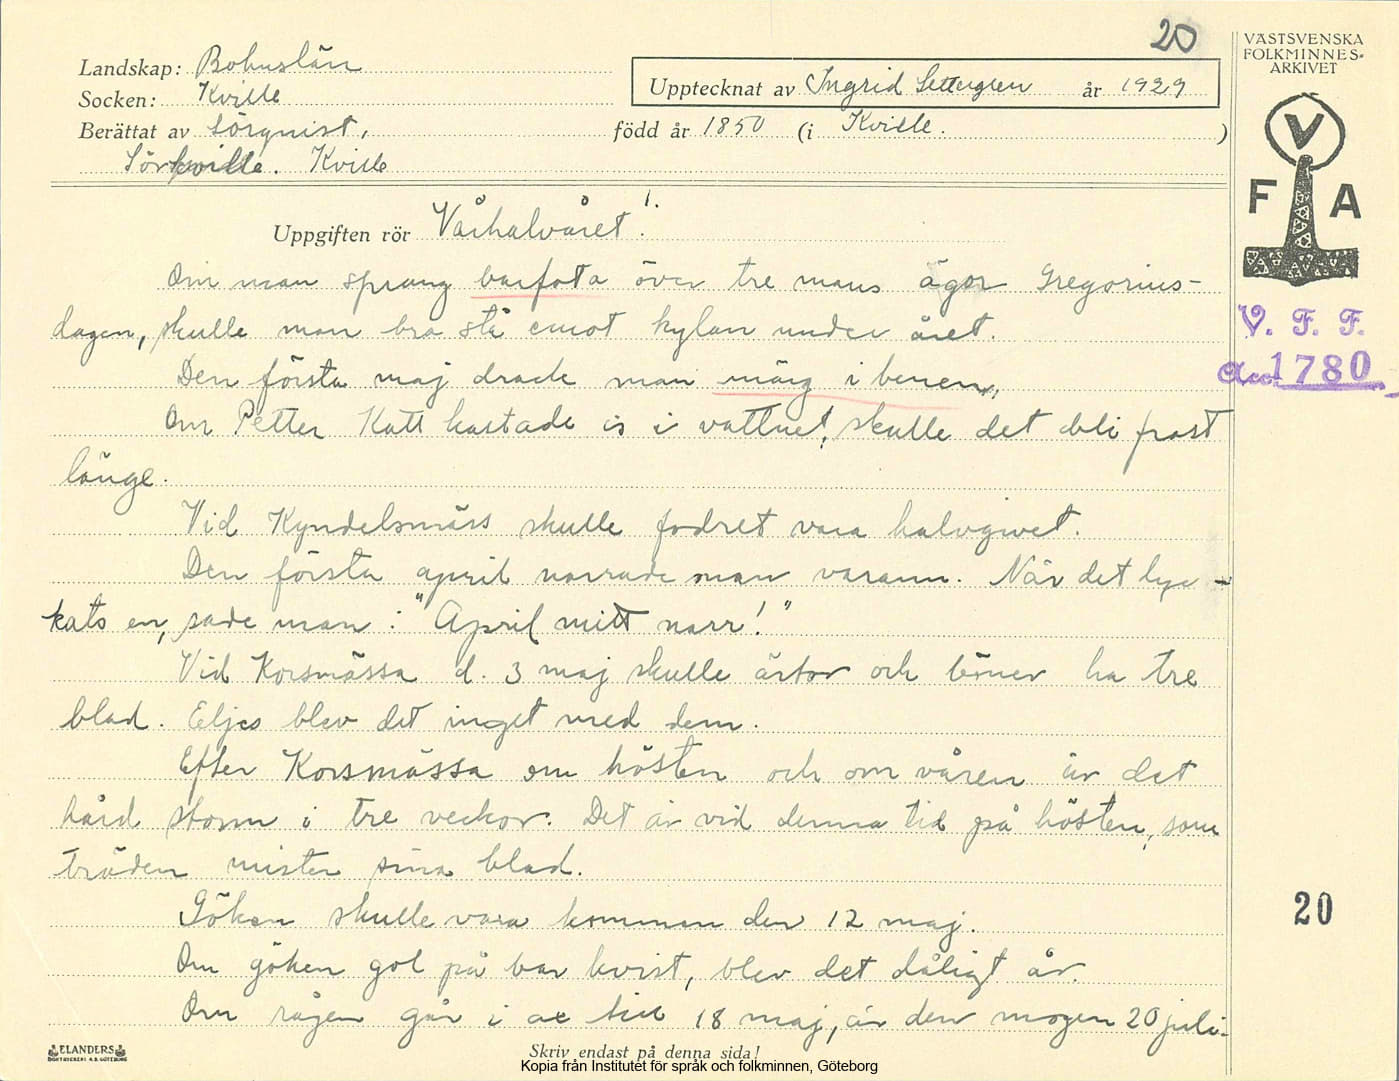 20
VÄSTSVENSKA
FOLKMINNES-
ARKIVET
Landskap: Bohuslän
Socken: Kville
Upptecknat av Ingrid Settergren år 1929
Berättat av Sörqvist, född år 1850 (i Kville. )
Sörkville. Kville
V
F A
Uppgiften rör Vårhalvåret 1.
Om man sprang barfota över tre mans ägor Gregorius-
dagen, skulle man bra stå emot kylan under året.
V. F. F.
Acc. 1780
Den första maj drack man märg i benen.
Om Petter Katt kastade is i vattnet, skulle det bli frost
länge.
Vid Kyndelsmäss skulle fodret vara halvgivet.
Den första april narrade man varann. När det lyc-
kats en, sade man: "April mitt narr!"
Vid Korsmässa d. 3 maj skulle ärtor och bönor ha tre
blad. Eljes blev det inget med dem.
Efter Korsmässa om hösten och om våren är det
hård storm i tre veckor. Det är vid denna tid på hösten, som
träden mister sina blad.
Göken skulle vara kommen den 12 maj.
20
Om göken gol på bar kvist, blev det dåligt år.
Om rågen går i ax till 18 maj, är den mogen 20 juli.
ELANDERS
BOKTRYCKERI A.B. GÖTEBORG
Skriv endast på denna sida!
Kopia från Institutet för språk och folkminnen, Göteborg